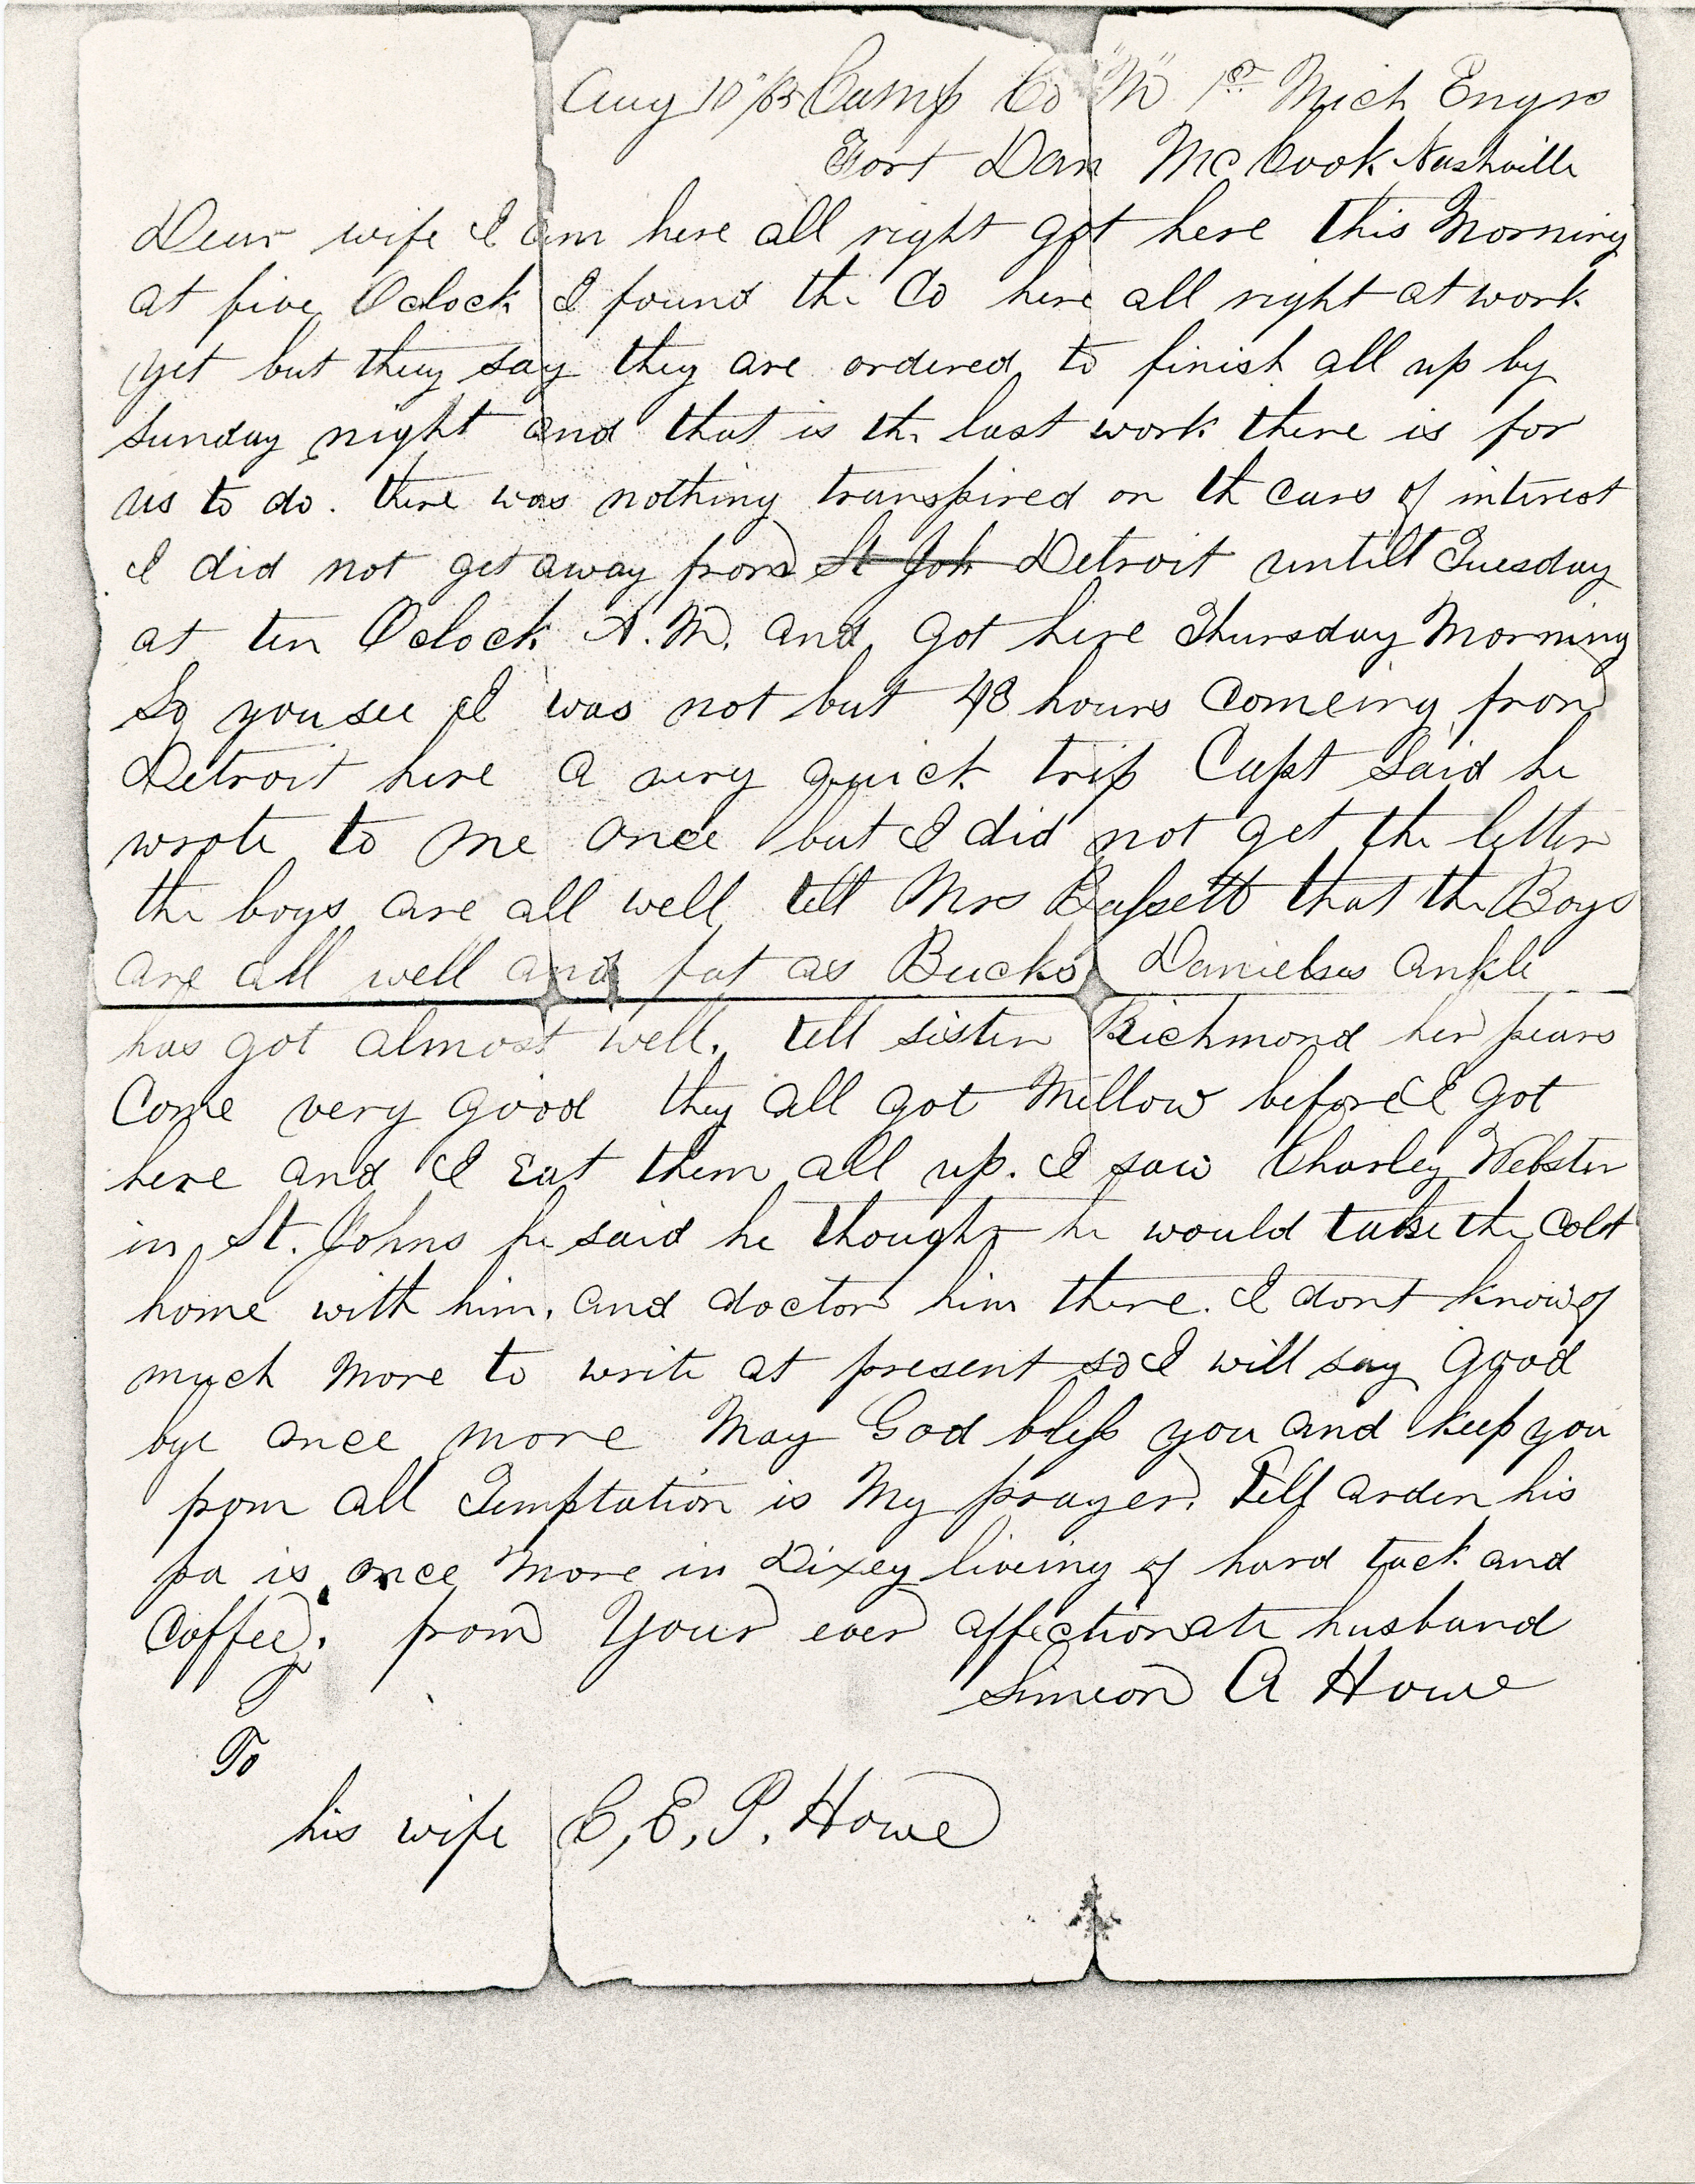 Aug 10th/65 Camp Co "M" 1st Mich Engrs
Fort Dan McCook Nashville
Dear wife I am here all right got here this Morning
at five Oclock I found the Co here all right at work
yet but they say they are ordered to finish all up by
Sunday night and that is the last work there is for
us to do. there was nothing transpired on th cars of interest
I did not get away from St Joh Detroit untill Tuesday
at ten Oclock A.M. and got here Thursday Morning
So you see I was not but 48 hours Comeing from
Detroit here a very quick trip Capt Said he
wrote to me once but I did not get the letter
the boys are all well tell Mrs Bassett that the Boys
are all well and fat as Bucks Danielses ankle
has got almost well. tell sister Richmond her pears
Come very good they all got Mellow before I got
here and I Eat them all up. I saw Charley Webster
in St. Johns he said he thought he would take the Colt
home with him. and doctor him there. I dont know of
much More to write at present so I will say good
bye once more May God bless you and keep you
from all Temptation is My prayer. Tell Arden his
pa is once More in Dixey liveing of hard tack and
Coffee. from Your ever affectionate husband
Simeon A Howe
To
his wife C. E. P. Howe